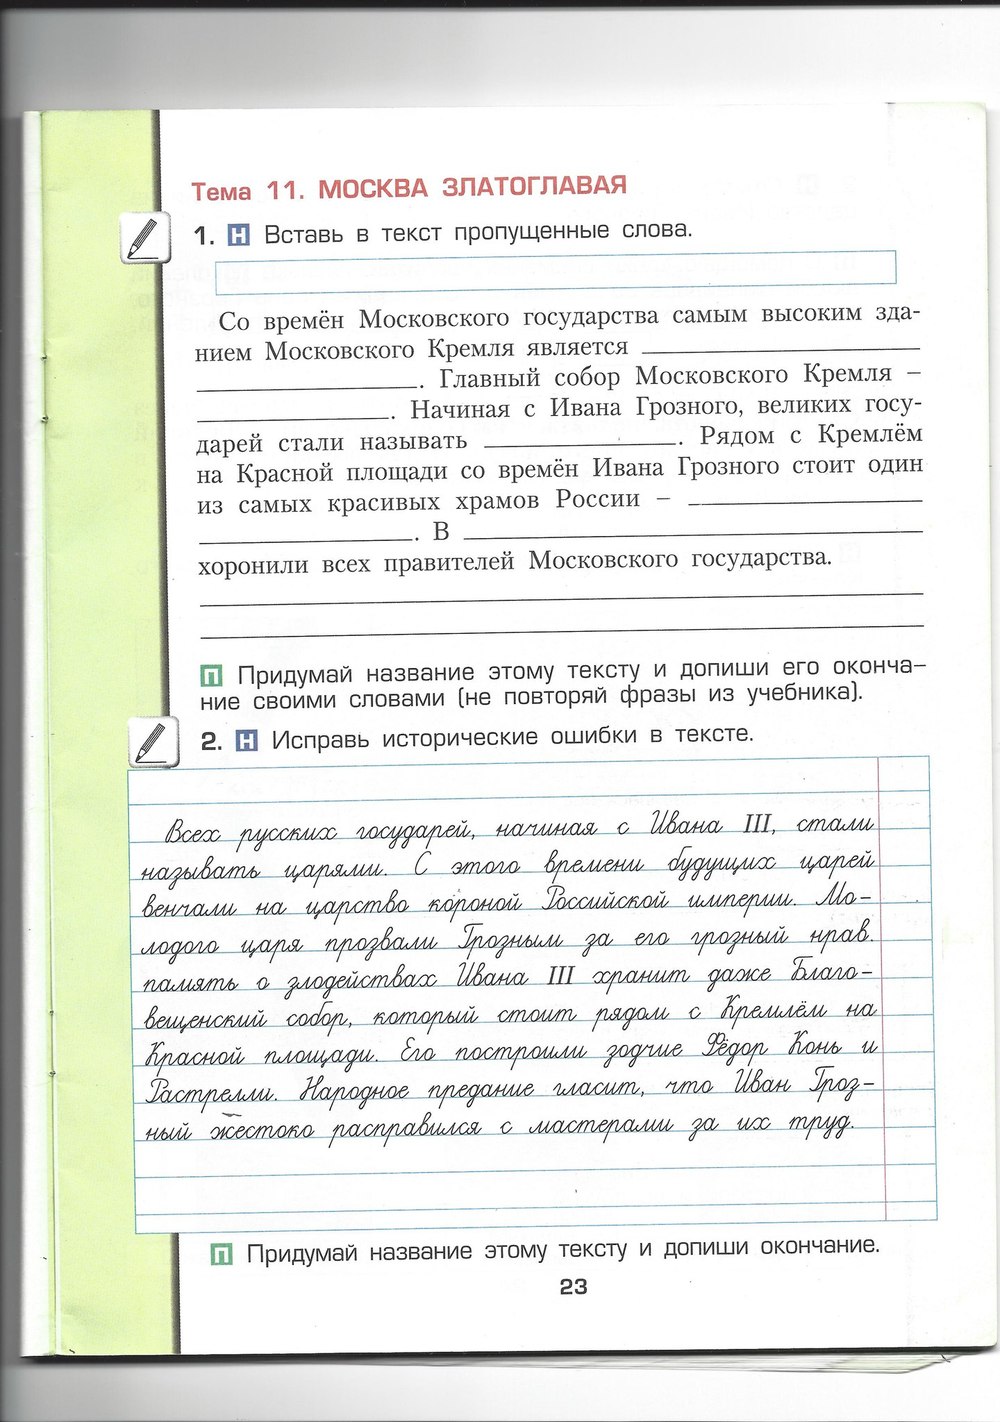 Тема 11. МОСКВА ЗЛАТОГЛАВАЯ
1. Н Вставь в текст пропущенные слова.
Со времён Московского государства самым высоким зда-
нием Московского Кремля является
. Главный собор Московского Кремля –
. Начиная с Ивана Грозного, великих госу-
дарей стали называть . Рядом с Кремлём
на Красной площади со времён Ивана Грозного стоит один
из самых красивых храмов России –
. В
хоронили всех правителей Московского государства.
П Придумай название этому тексту и допиши его оконча-
ние своими словами (не повторяй фразы из учебника).
2. Н Исправь исторические ошибки в тексте.
Всех русских государей, начиная с Ивана III, стали
называть царями. С этого времени будущих царей
венчали на царство короной Российской империи. Мо-
лодого царя прозвали Грозным за его грозный нрав.
память о злодействах Ивана III хранит даже Благо-
вещенский собор, который стоит рядом с Кремлём на
Красной площади. Его построили зодчие Фёдор Конь и
Растрелли. Народное предание гласит, что Иван Гроз-
ный жестоко расправился с мастерами за их труд.
П Придумай название этому тексту и допиши окончание.
23